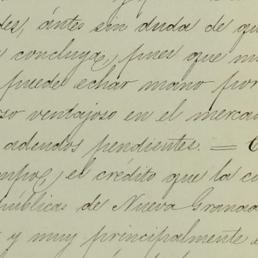 des, ántes sin duda de qu
concluya, pues que m
puede echar mano por
so ventajoso en el merca
adeudos pendientes. —
mpoc, el crédito que la c
públicas de Nueva Granad
y muy principalmente